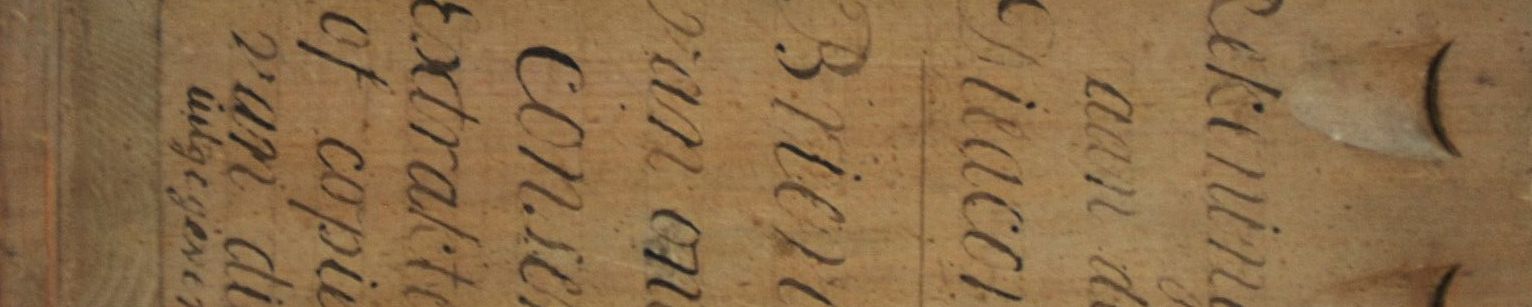 Rekenin
aan d
Diacon
Brieve
van on
Consen
Extrakte
of copie
van di
uitgegeven